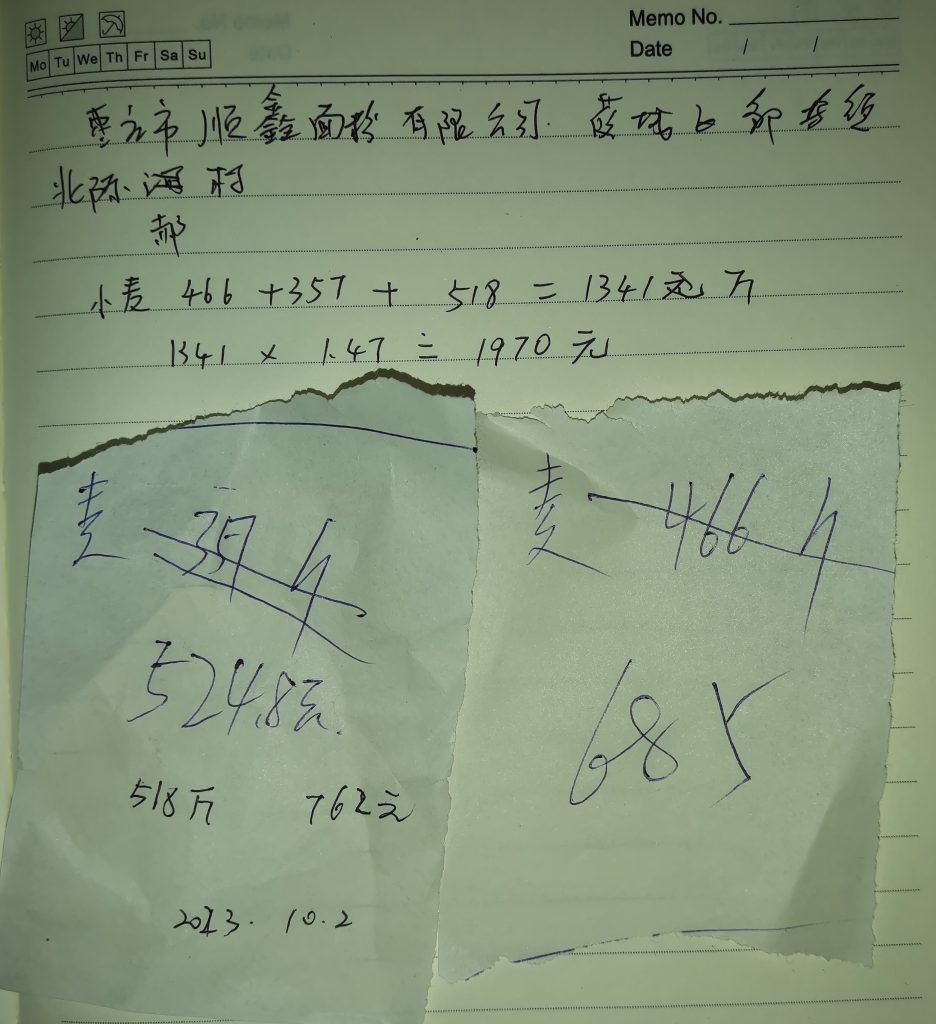 Memo No.
Mo Tu We Th Fr Sa Su
Date / /
枣庄市顺鑫面粉有限公司. 黄城
北陈河村
郝
小麦 466 + 357 + 518 = 1341元 斤
1341 × 1.47 = 1970 元
麦 357 斤
524.8元.
518斤 762元
2023. 10.2
麦 466 斤
685